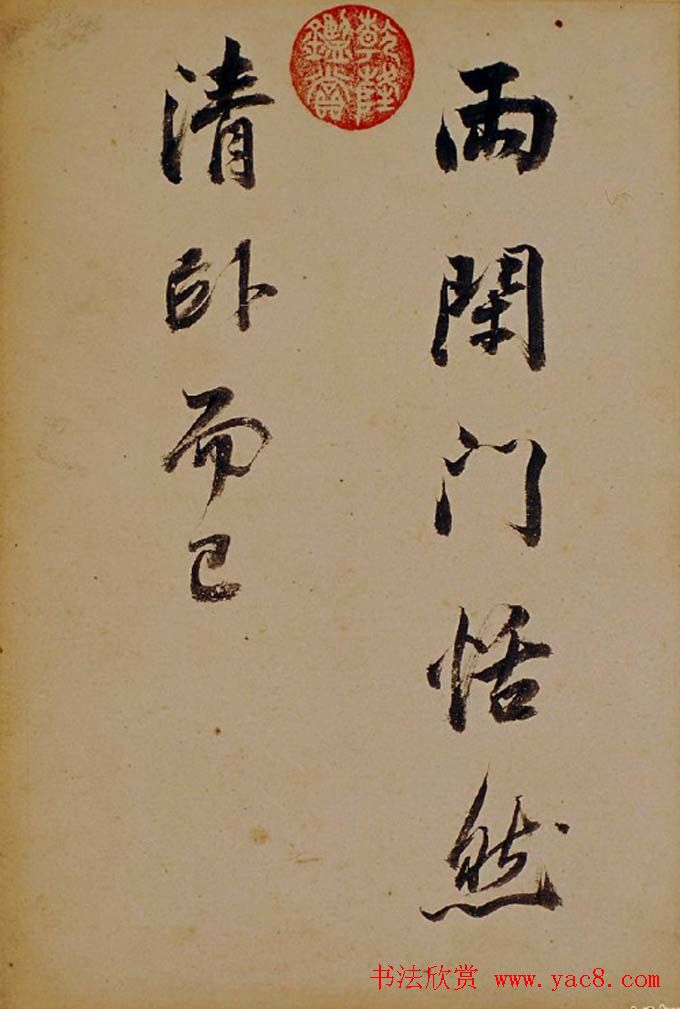 雨閉门恬然
清卧而已
乾隆
鑑賞
书法欣赏 www.yac8.com